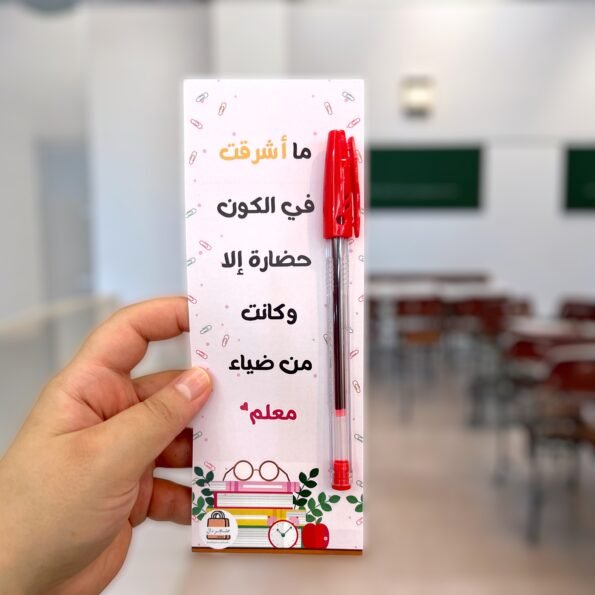 ما أشرقت
في الكون
حضارة إلا
وكانت
من ضياء
معلم